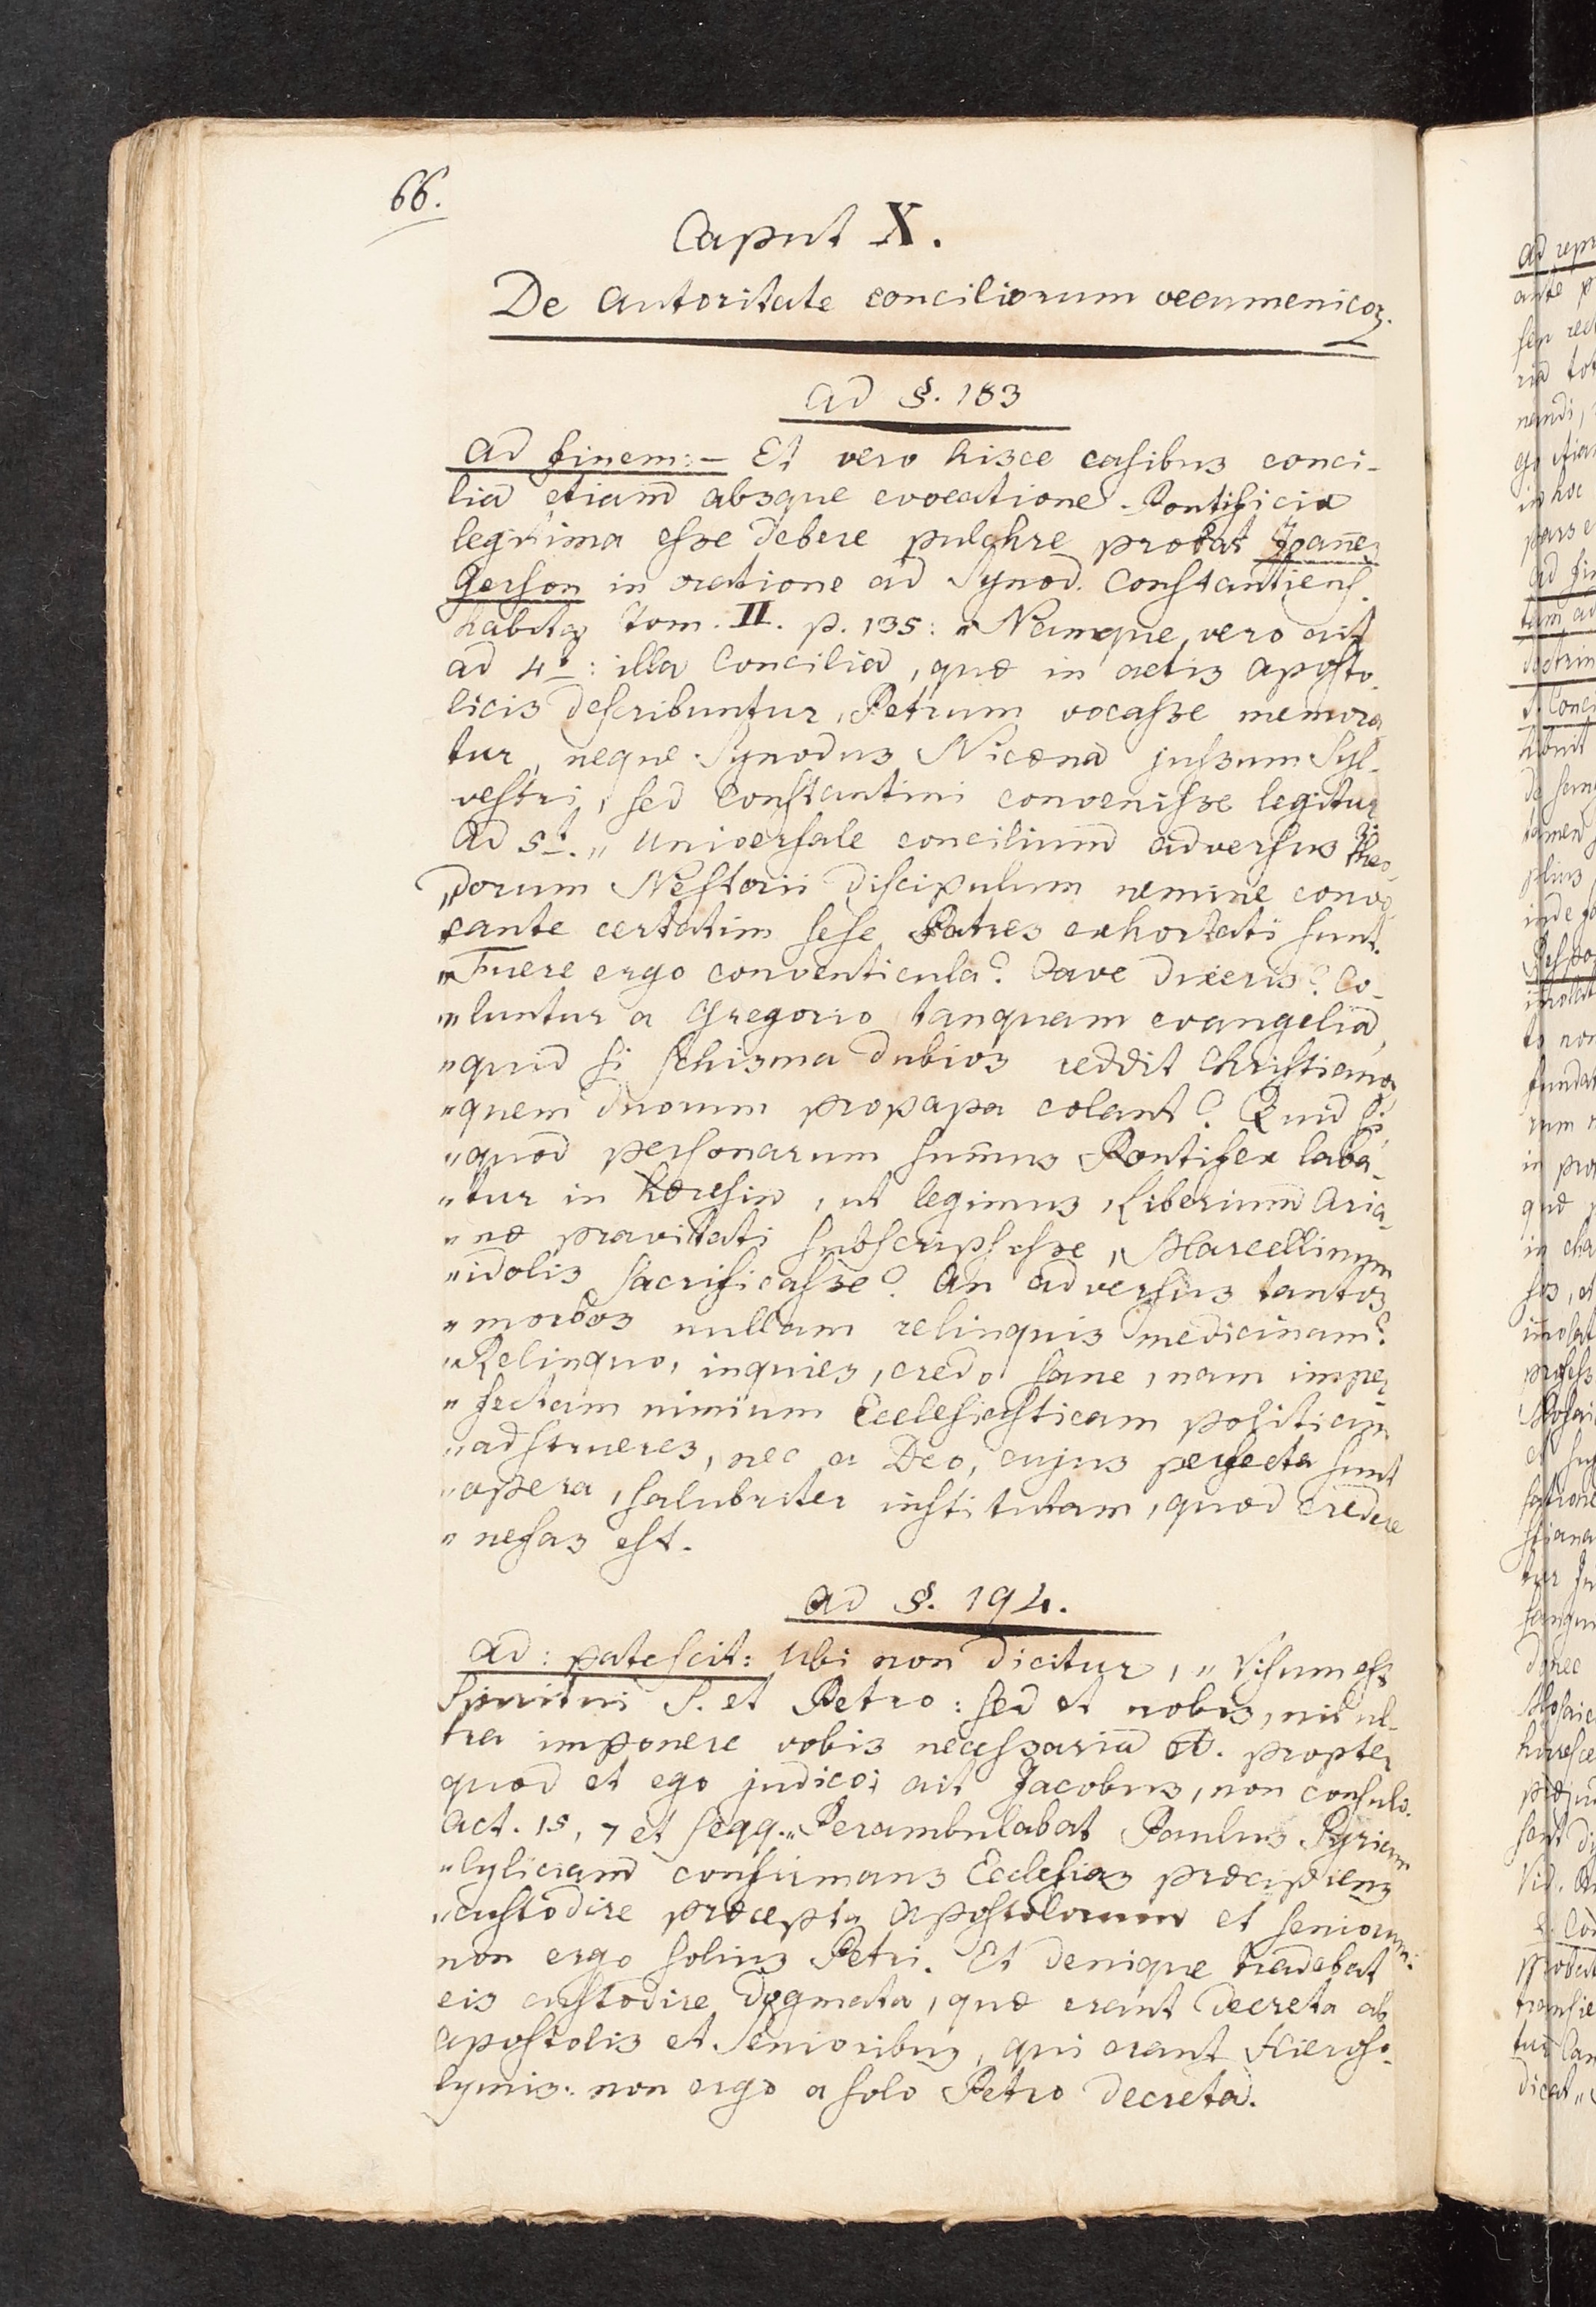 66.
Caput X.
De autoritate conciliorum oecumenicoꝝ.
ad §. 183
ad finem: – Et vero hisce casibus conci-
lia etiam absque evocatione Pontificia
legitima esse debere pulchre probat Joannes
Gerson in oratione ad Synod. Constantiens.
habita Tom. II. p. 135: „Namque vero ait
ad 4: illa Concilia, quæ in actis aposto-
licis describuntur, Petrum vocasse memora
tur, neque Synodus Nicæna jussum Syl-
vestri, sed Constantini convenisse legitur
Ad 5. „ universale concilium adversus Theo-
„dorum Nestorii discipulum nemine convo
cante certatim sese Patres exhortati sunt.
„Fuere ergo conventicula? Cave dixeris? Co-
„luntur a Gregorio tanquam evangelia,
„quid si schisma dubios reddit Christianos
„quem duorum pro papa colant? Quid si,
„quod personarum sum̄us Pontifex laba-
„tur in hæresin, ut legimus, Liberium Aria-
„næ pravitati subscripsisse, Marcellinum
„idolis sacrificasse? An adversus tantos
„morbos nullam relinquis medicinam?
„Relinquo, inquies, credo sane, nam imper
„fectam nimium Ecclesiasticam politiam
„adstrueres, nec a Deo, cujus perfecta sunt
„opera, salubriter institutam, quod credere
„nefas est.
ad §. 194.
ad: patescit: Ubi non dicitur, „Visum est
Spiritui S. et Petro: sed et nobis, nil ul-
tra imponere vobis necessaria et. propter
quod et ego judico; ait Jacobus, non consulo.
Act. 15, 7 et seqq. „Perambulabat Paulus Syriam
„Cyliciam confirmans Ecclesias præcipiens
„custodire præcepta Apostolorum et seniorum:
non ergo solius Petri. Et denique tradebat
eis custodire dogmata, quæ erant decreta ab
apostolis et Senioribus, qui erant Hieroso-
lymis: non ergo a solo Petro decreta.